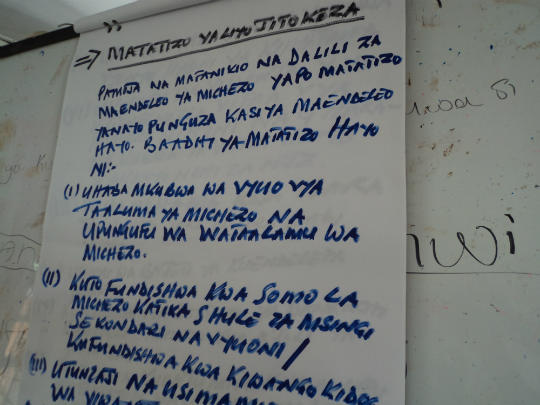 => MATATIZO YALIYOJITOKEZA
PAMOJA NA MAFANIKIO NA DALILI ZA
MAENDELEO YA MICHEZO YAPO MATATIZO
YANAYOPUNGUZA KASI YA MAENDELEO
HAYO. BAADHI YA MATATIZO HAYO
NI:-
(i) UHABA MKUBWA WA VYUO VYA
TAALUMA YA MICHEZO NA
UPUNGUFU WA WATAALAMU WA
MICHEZO.
(ii) KUTOFUNDISHWA KWA SOMO LA
MICHEZO KATIKA SHULE ZA MSINGI
SEKONDARI NA VYUONI /
KUFUNDISHWA KWA KIWANGO KIDOG
(iii) UTUNZAJI NA USIMAMIZI
WA